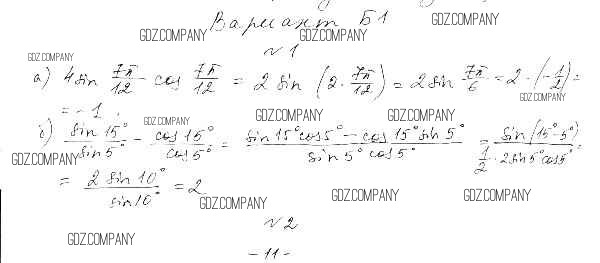 Вариант Б1
GDZ.COMPANY GDZ.COMPANY GDZ.COMPANY
№1
GDZ.COMPANY
а) 4 sin 7π/12 - cos 7π/12 = 2 sin (2 · 7π/12) = 2 sin 7π/6 = 2 · (-1/2) =
GDZ.COMPANY
= -1.
GDZ.COMPANY GDZ.COMPANY GDZ.COMPANY
б) sin 15°/sin 5° - cos 15°/cos 5° = (sin 15° cos 5° - cos 15° sin 5°)/(sin 5° cos 5°) = sin (15° - 5°)/(1/2 · 2 sin 5° cos 5°) =
GDZ.COMPANY
= 2 sin 10°/sin 10° = 2
GDZ.COMPANY GDZ.COMPANY GDZ.COMPANY
№2
GDZ.COMPANY
- 11 -